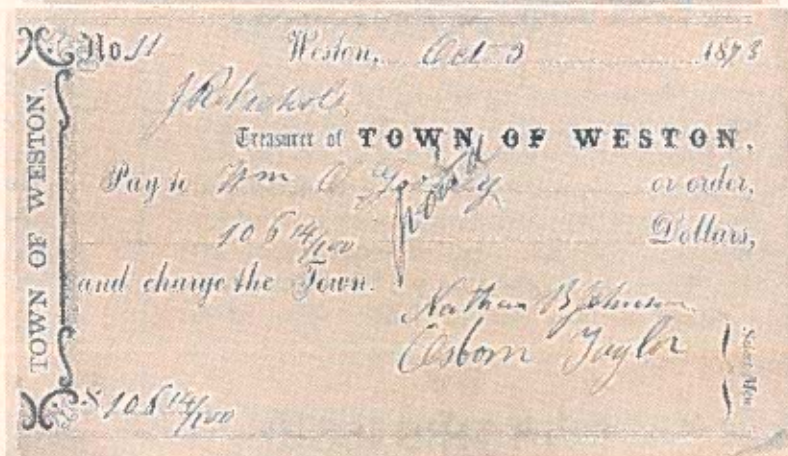 TOWN OF WESTON.
No 11 Weston, Oct 3 1873
J R Nichols
Treasurer of TOWN OF WESTON.
Pay to Wm O or order,
106 14/100 Dollars,
and charge the Town.
Nathan B Johnson
Osborn Taylor
Select Men
$ 106 14/100